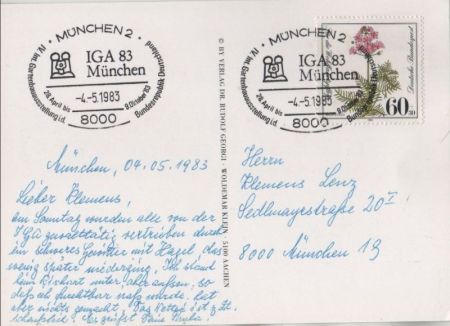 MÜNCHEN 2
IGA 83
München
-4.-5.1983
28. April bis 9. Oktober 83
8000
IV. Int. Gartenbauausstellung i.d. Bundesrepublik Deutschland
MÜNCHEN 2
IGA 83
München
-4.-5.1983
28. April bis 9. Oktober 83
8000
IV. Int. Gartenbauausstellung i.d.
Deutsche Bundespost
60
© BY VERLAG DR. RUDOLF GEORGI · WOLDEMAR KLEIN · 5100 AACHEN
München, 04.05.1983
Lieber Klemens,
am Sonntag wurden alle von der
IGA vertrieben durch
ein schweres Gewitter mit Hagel, das
wenig später niederging. Ich stand
beim aber außen, so
daß ich naß wurde. hat
aber nichts gemacht. Das Wetter ist z. Zt.
scheußlich! Es grüßt Deine
Herrn
Klemens Lenz
Sedlmayrstraße 20 I
8000 München 19